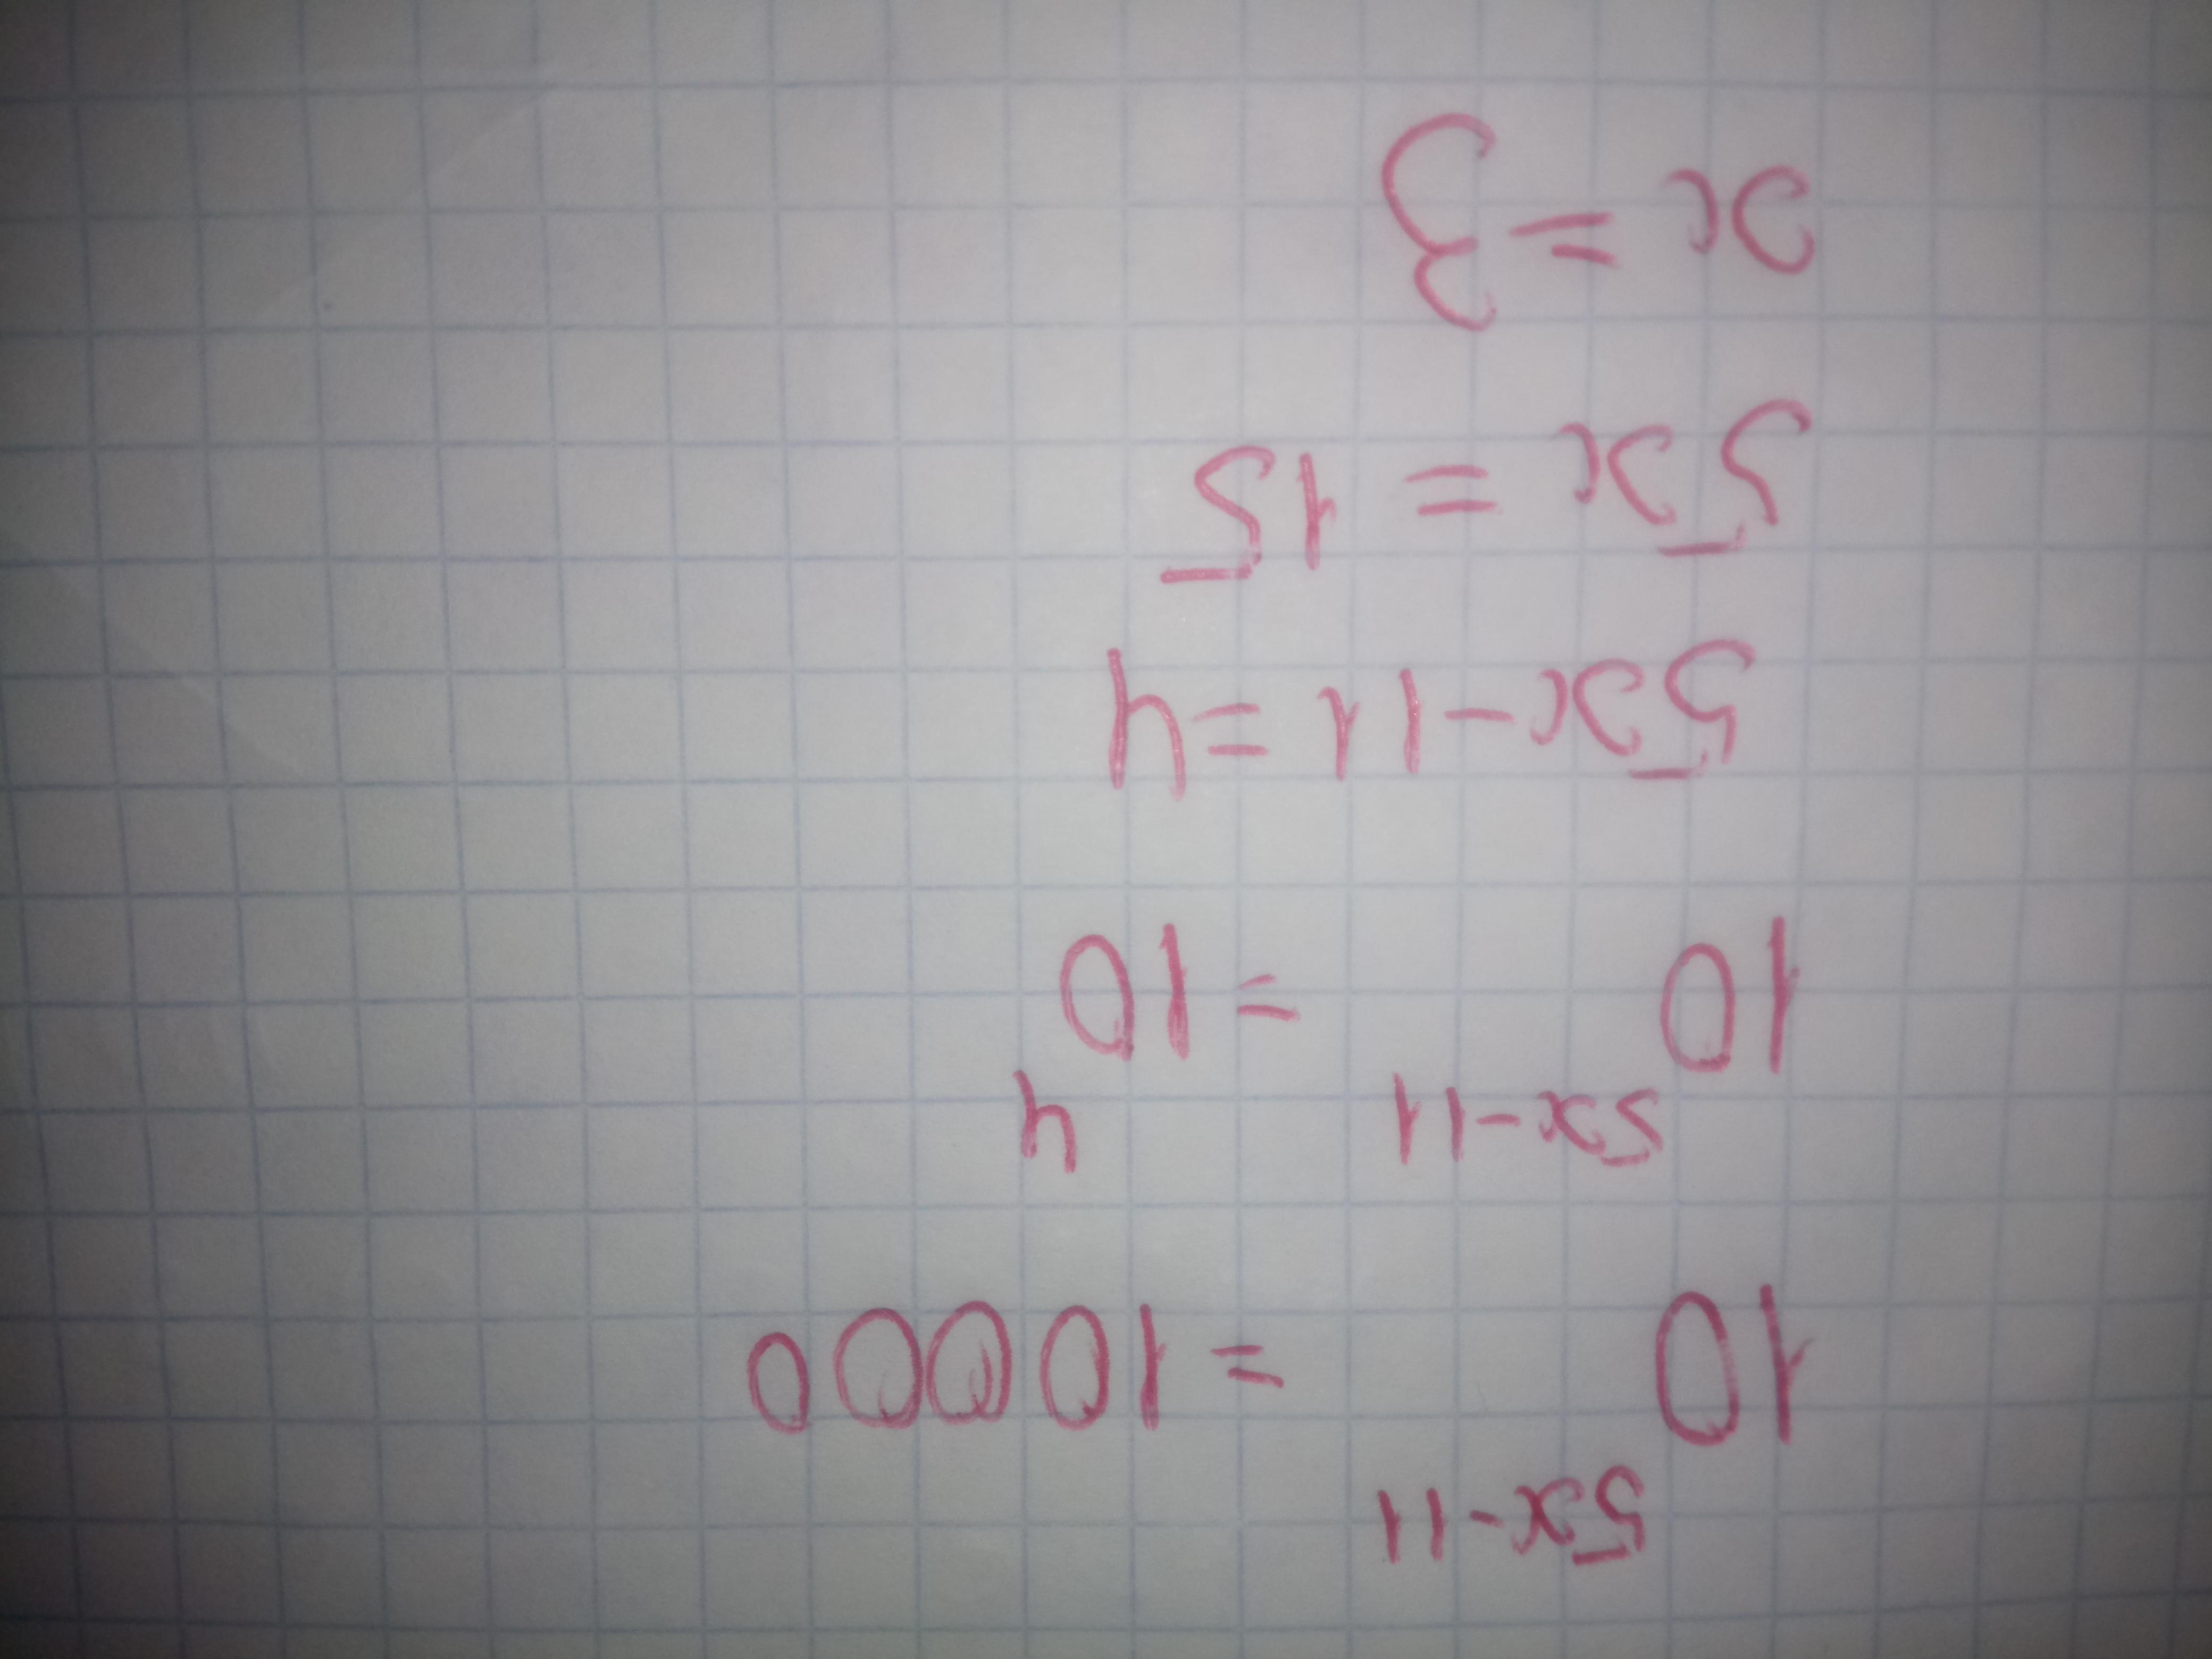 10^{5x-11} = 10000
10^{5x-11} = 10^{4}
5x-11=4
5x = 15
x = 3